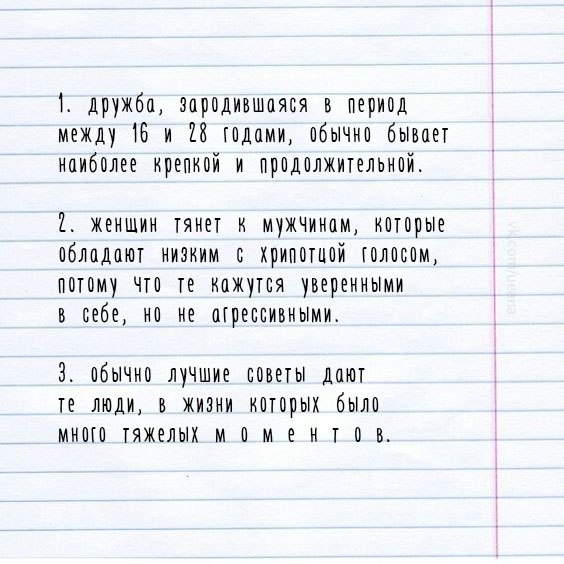 1. дружба, зародившаяся в период
между 16 и 28 годами, обычно бывает
наиболее крепкой и продолжительной.
2. женщин тянет к мужчинам, которые
обладают низким с хрипотцой голосом,
потому что те кажутся уверенными
в себе, но не агрессивными.
3. обычно лучшие советы дают
те люди, в жизни которых было
много тяжелых м о м е н т о в.